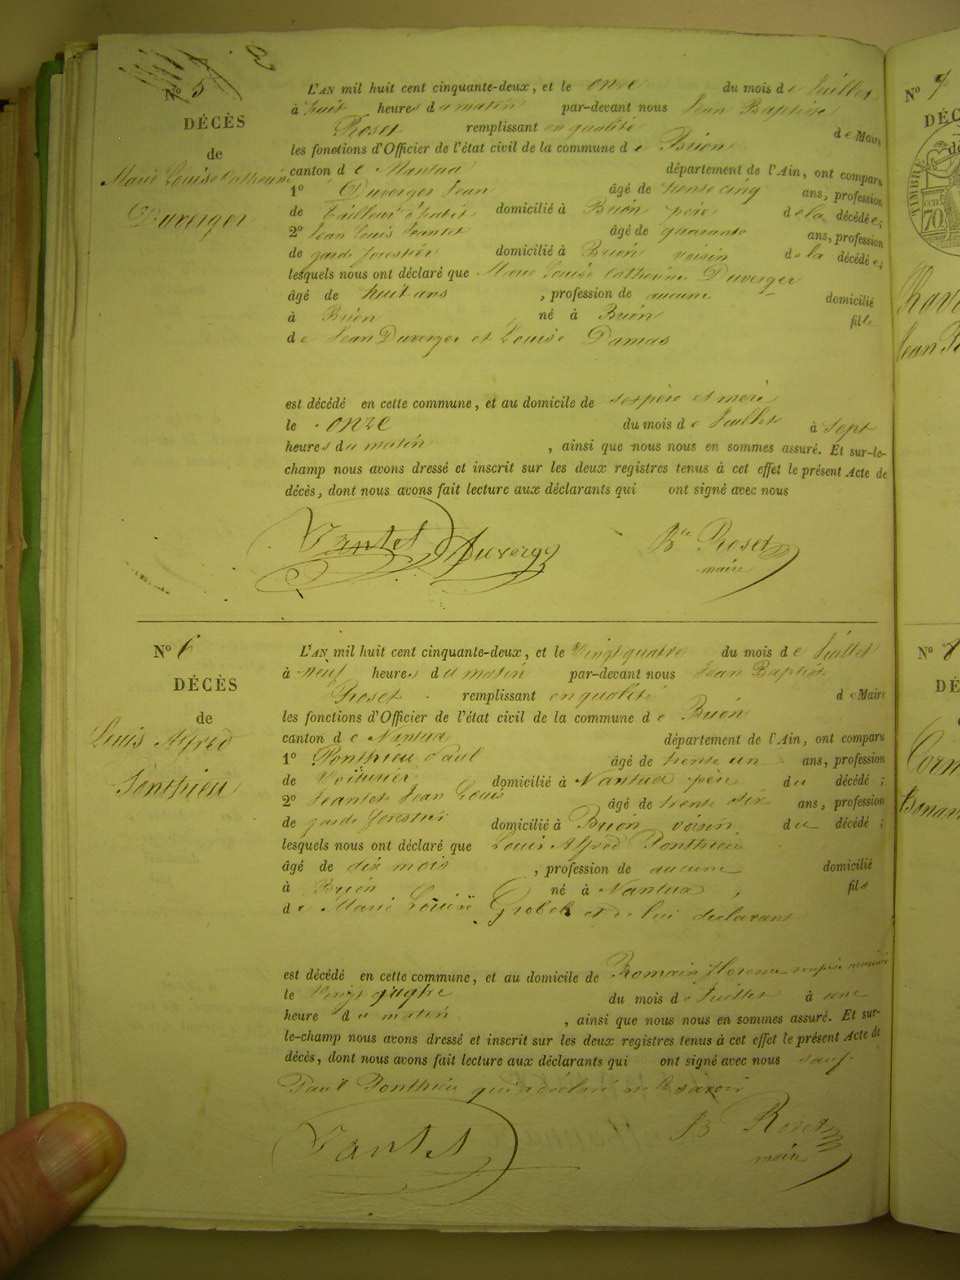 N° 5
DÉCÈS
de
Marie Louise Catherine
Duverger
L'AN mil huit cent cinquante-deux, et le onze du mois de Juillet
à huit heures du matin par-devant nous Jean Baptiste
Roset remplissant en qualité de Maire
les fonctions d'Officier de l'état civil de la commune de Brion
canton de Nantua département de l'Ain, ont comparu
1° Duverger Jean âgé de trente cinq ans, profession
de Tailleur d'habit domicilié à Brion père de la décédée;
2° Jean Louis âgé de quarante ans, profession
de garde forestier domicilié à Brion voisin de la décédée;
lesquels nous ont déclaré que Marie Louise Catherine Duverger
âgé de huit ans , profession de aucune domicilié
à Brion né à Brion fille
de Jean Duverger et Louise Damas
est décédé en cette commune, et au domicile de ses père et mère
le onze du mois de Juillet à sept
heures du matin , ainsi que nous nous en sommes assuré. Et sur-le-
champ nous avons dressé et inscrit sur les deux registres tenus à cet effet le présent Acte de
décès, dont nous avons fait lecture aux déclarants qui ont signé avec nous
Duverger Roset
maire
N° 6
DÉCÈS
de
Louis Alfred
Ponthieu
L'AN mil huit cent cinquante-deux, et le vingt quatre du mois de Juillet
à neuf heures du matin par-devant nous Jean Baptiste
Roset remplissant en qualité de Maire
les fonctions d'Officier de l'état civil de la commune de Brion
canton de Nantua département de l'Ain, ont comparu
1° Ponthieu Paul âgé de trente un ans, profession
de Voiturier domicilié à Nantua père du décédé;
2° Jean Louis âgé de trente six ans, profession
de garde forestier domicilié à Brion voisin du décédé;
lesquels nous ont déclaré que Louis Alfred Ponthieu
âgé de dix mois , profession de aucune domicilié
à Brion né à Nantua , fils
de Marie Louise et de lui déclarant
est décédé en cette commune, et au domicile de Romain
le vingt quatre du mois de Juillet à une
heure du matin , ainsi que nous nous en sommes assuré. Et sur-
le-champ nous avons dressé et inscrit sur les deux registres tenus à cet effet le présent Acte de
décès, dont nous avons fait lecture aux déclarants qui ont signé avec nous sauf
Paul Ponthieu qui a déclaré ne le savoir
B Roset
maire
N° 7
TIMBRE
70
N° 8